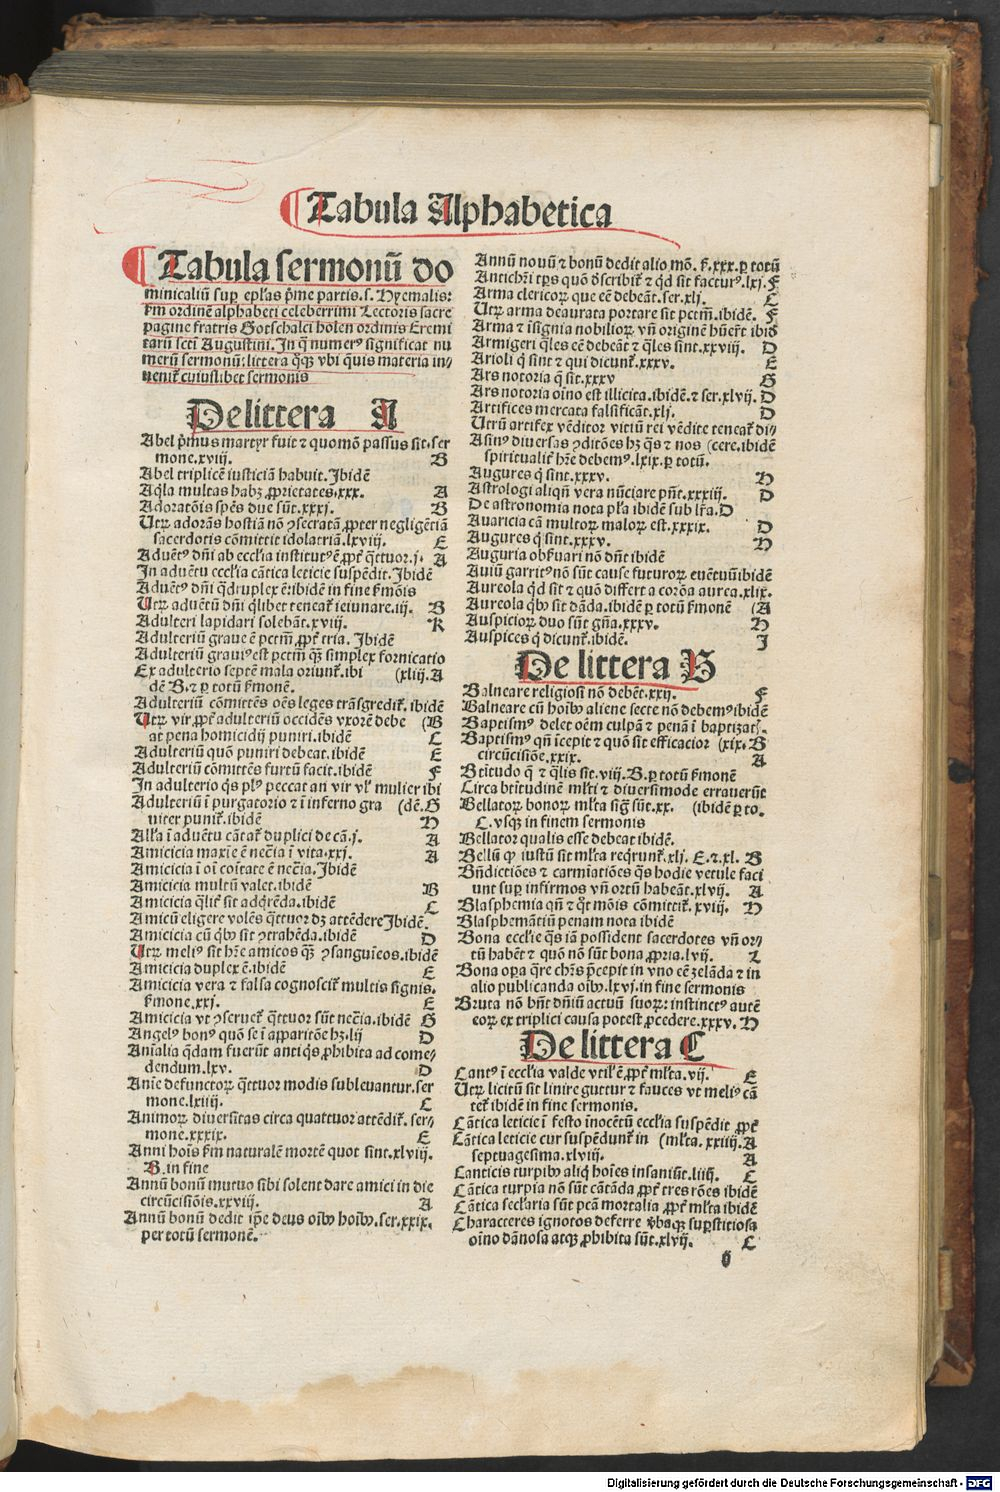 Tabula Alphabetica
Tabula sermonū do
minicaliū suꝑ ep̄las p̄me partis.s. Hyemalis:
ẜm ordinē alphabeti celeberrimi Lectoris sacre
pagine fratris Gotschalci holen ordinis Eremi
tarū scti Augustini. In q̄ numerꝰ significat nu
merū sermonū: littera q̄ꝫ vbi q̄uis materia in⸗
uenit̄ cuiuslibet sermonis
De littera A
Abel p̄mus martyr fuit ⁊ quomō passus sit.ser
mone.xviij. B
Abel triplicē iusticiā habuit. Ibidē
Aq̄la multas habꝫ ꝓprietates.xxx. A
Adoratōis spēs due sūt.xxxj. B
Utꝝ adorās hostiā nō ↄsecratā ꝓpter negligētiā
sacerdotis cōmittit idolatriā.lxviij. E
Aduētꝰ dn̄i ab eccl̄ia institutꝰ ē ꝓpt̄ q̄ttuor.j. A
In aduētu eccl̄ia cātica leticie suspēdit. Ibidē
Aduētꝰ dn̄i q̄druplex ē: ibidē in fine ẜmōis
Utꝝ aduētū dn̄i q̄libet teneat̄ ieiunare.iij. B
Adulteri lapidari solebāt.xviij. K
Adulteriū graue ē pctm̄ ꝓpt̄ tria. Ibidē
Adulteriū grauiꝰ est pctm̄ qꝫ̄ simplex fornicatio
Ex adulterio septē mala oriunt̄.ibi (xliij.A
dē B. ⁊ ꝑ totū ẜmonē.
Adulteriū cōmittēs oēs leges trāsgredit̄. ibidē
Utꝝ vir ꝓpt̄ adulteriū occidēs vxorē debe (B
at pena homicidij puniri.ibidē C
Adulteriū quō puniri debeat.ibidē E
Adulteriū cōmittēs furtū facit.ibidē F
In adulterio q̄s plꝰ peccat an vir vl̄ mulier ibi
Adulteriū ī purgatorio ⁊ ī inferno gra (dē.G
uiter punit̄.ibidē H
All̄a ī aduētu cātat̄ duplici de cā.j. A
Amicicia maxīe ē nec̄ia ī vita.xxj. A
Amicicia ī oī coitate ē nec̄ia. Ibidē
Amicicia multū valet.ibidē B
Amicicia q̄lit̄ sit adq̄rēda.ibidē C
Amicū eligere volēs q̄ttuor dꝫ attēdere Ibidē.
Amicicia cū q̄bꝰ sit ↄtrahēda.ibidē D
Utꝝ meliꝰ sit hr̄e amicos qꝫ̄ ↄsanguīeos.ibidē
Amicicia duplex ē.ibidē E
Amicicia vera ⁊ falsa cognoscit̄ multis signis.
ẜmone.xxj. E
Amicicia vt ↄseruet̄ q̄ttuor sūt nec̄ia.ibidē G
Angelꝰ bonꝰ quō se ī apparitōe hꝫ.lij D
Aīalia q̄dam fuerūt antiq̄s ꝓhibita ad come⸗
dendum.lxv. D
Anīe defunctoꝝ q̄ttuor modis subleuantur.ser
mone.lxiiij. C
Animoꝝ diuersitas circa quattuor attēdit̄. ser⸗
mone.xxxix. E
Anni hoīs ẜm naturalē mortē quot sint.xlviij.
B.in fine
Annū bonū mutuo sibi solent dare amici in die
circūcisiōis.xxviij. A
Annū bonū dedit ip̄e deus oībꝰ hoībꝰ.ser.xxix.
per totū sermonē.
Annū nouū ⁊ bonū dedit alio mō. ẜ.xxx.ꝑ totū
Antichr̄i tꝑs quō d̄scribit̄ ⁊ qd̄ sit facturꝰ.lxj. F
Arma clericoꝝ que eē debeāt.ser.xlj. C
Utꝝ arma deaurata portare sit pctm̄.ibidē. F
Arma ⁊ īsignia nobilioꝝ vn̄ originē hūer̄t ibid̄
Armigeri q̄les eē debeāt ⁊ q̄les sint.xxviij. D
Arioli q̄ sint ⁊ qui dicunt̄.xxxv. E
Ars notoria q̄ sit.xxxv G
Ars notoria oīno est illicita.ibidē.⁊ ser.xlvij. D
Artifices mercata falsificāt.xlj. D
Utrū artifex vēditor vitiū rei vēdite teneat̄ di⸗
Asinꝰ diuersas ↄditōes hꝫ q̄s ⁊ nos (cere.ibidē
spiritualit̄ hr̄e debemꝰ.lxix.ꝑ totū.
Augures q̄ sint.xxxv. H
Astrologi aliqn̄ vera nūciare pn̄t.xxxiij. D
De astronomia nota pl̄a ibidē sub lr̄a.D
Avaricia cā multoꝝ maloꝝ est.xxxix. D
Augures q̄ sint.xxxv. H
Auguria obẜuari nō dn̄t ibidē
Auiū garritꝰ nō sūt cause futuroꝝ euētuū ibidē
Aureola qd̄ sit ⁊ quō differt a corōa aurea.xlix.
Aureola q̄bꝰ sit dāda.ibidē ꝑ totū ẜmonē (A
Auspicioꝝ duo sūt gn̄a.xxxv. H
Auspices q̄ dicunt̄.ibidē. I
De littera B
Balneare religiosi nō debēt.xxij. F
Balneare cū hoībꝰ aliene secte nō debemꝰ ibidē
Baptismꝰ delet oēm culpā ⁊ penā ī baptizatꝭ.
Baptismꝰ qn̄ īcepit ⁊ quō sit efficacior (xix. B
circūcisiōe.xxix. A
Btītudo q̄ ⁊ q̄lis sit.viij.B.ꝑ totū ẜmonē
Circa btitudinē ml̄ti ⁊ diuersimode errauerūt
Bellatoꝝ bonoꝝ ml̄ta siḡ sūt.xx. (ibidē ꝑ to.
C.vsqꝫ in finem sermonis
Bellator qualis esse debeat ibidē.
Bellū ꝙ iustū sit ml̄ta req̄runt̄.xlj. E.⁊.xl. B
Bn̄dictiōes ⁊ carmīatiōes q̄s hodie vetule faci
unt suꝑ infirmos vn̄ ortū habeāt.xlvij. A
Blasphemia qn̄ ⁊ q̄t mōis cōmittit̄.xviij. H
Blasphemātiū penam nota ibidē
Bona eccl̄ie q̄s iā possident sacerdotes vn̄ or⸗
tū habēt ⁊ quō nō sūt bona ꝓpria.lvij. L
Bona oꝑa q̄re chr̄s p̄cepit in vno eē zelāda ⁊ in
alio publicanda oībꝰ.lxvj.in fine sermonis
Bruta nō hn̄t dn̄iū actuū suoꝝ: instinctꝰ autē
eoꝝ ex triplici causa potest ꝓcedere.xxxv. H
De littera C
Cantꝰ ī eccl̄ia valde vtil̄ ē ꝓpt̄ ml̄ta.vij. E
Utꝝ licitū sit linire guttur ⁊ fauces vt meliꝰ cā
tet̄ ibidē in fine sermonis.
Cātica leticie ī festo īnocētū eccl̄ia suspēdit ꝓpt̄
Cātica leticie cur suspēdunt̄ in (ml̄ta. xxiiij.A
septuagesima.xlviij. A
Canticis turpibꝰ aliq̄ hoīes insaniūt.liiij. C
Cātica turpia nō sūt cātāda ꝓpt̄ tres rōes ibidē
Cātica secl̄aria sūt pcā mortalia ꝓpt̄ ml̄ta ibidē
Characteres ignotos defferre v̄baqꝫ suꝑstitiosa
oīno dānosa atqꝫ ꝓhibita sūt.xlvij. C
Digitalisierung gefördert durch die Deutsche Forschungsgemeinschaft - DFG